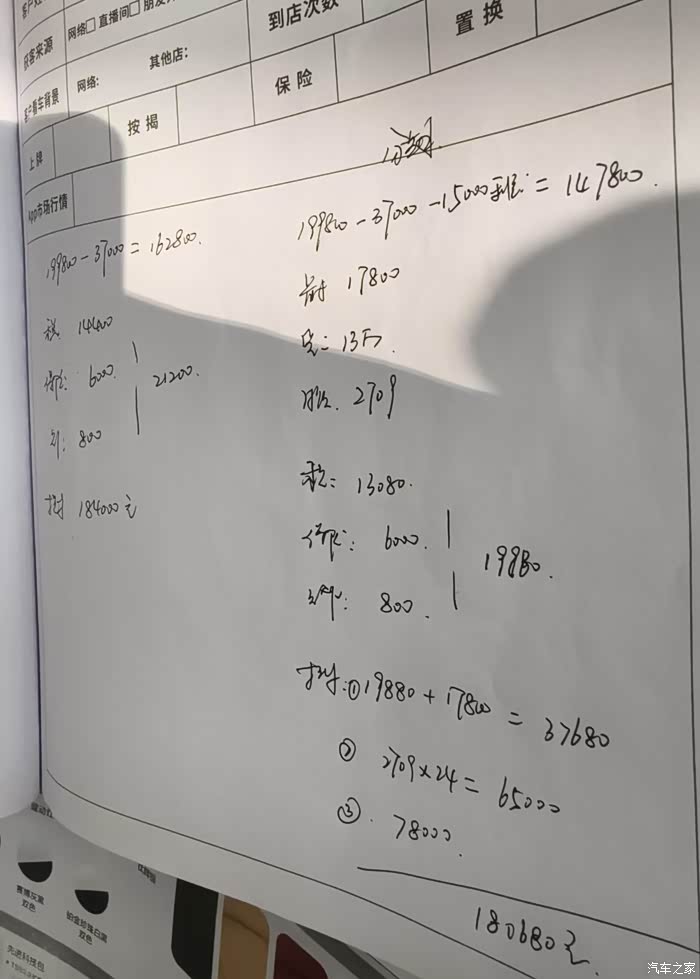 客户来源
网络□ 直播间□ 朋友
到店次数
置换
客户看车背景
网络:
其他店:
保险
上牌
按揭
App市场行情
分期
199800-37000=162800.
税 14400
保险: 6000.
21200.
800
184000元
199800-37000-15000 =147800.
首付 17800
贷: 13万.
月供. 2709
税: 13080.
保险: 6000.
19880.
800.
①19880+17800=37680
② 2709×24=65000
③. 78000.
180680元
赛博灰黑
双色
铂金珍珠白黑
双色
先进科技包
汽车之家